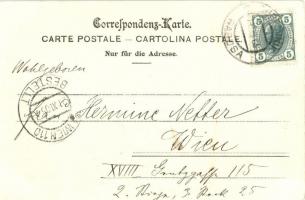 Correspondenz-Karte.
CARTE POSTALE — CARTOLINA POSTALE
Nur für die Adresse.
5 5
5 5
Wohlgeboren
BESTELLT
WIEN 110
Hermine Netter
Wien
XVIII. Gentzgasse 115
2. Stiege, 3. Stock 25